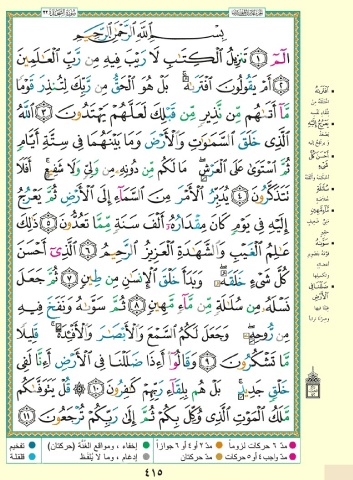 سورة السجدة ٣٢
بِسْمِ اللَّهِ الرَّحْمَٰنِ الرَّحِيمِ
الٓمٓ ١ تَنزِيلُ الْكِتَابِ لَا رَيْبَ فِيهِ مِن رَّبِّ الْعَالَمِينَ
٢ أَمْ يَقُولُونَ افْتَرَاهُ ۚ بَلْ هُوَ الْحَقُّ مِن رَّبِّكَ لِتُنذِرَ قَوْمًا
مَّا أَتَاهُم مِّن نَّذِيرٍ مِّن قَبْلِكَ لَعَلَّهُمْ يَهْتَدُونَ ٣ اللَّهُ
الَّذِي خَلَقَ السَّمَاوَاتِ وَالْأَرْضَ وَمَا بَيْنَهُمَا فِي سِتَّةِ أَيَّامٍ
ثُمَّ اسْتَوَىٰ عَلَى الْعَرْشِ ۖ مَا لَكُم مِّن دُونِهِ مِن وَلِيٍّ وَلَا شَفِيعٍ ۚ أَفَلَا
تَتَذَكَّرُونَ ٤ يُدَبِّرُ الْأَمْرَ مِنَ السَّمَاءِ إِلَى الْأَرْضِ ثُمَّ يَعْرُجُ
إِلَيْهِ فِي يَوْمٍ كَانَ مِقْدَارُهُ أَلْفَ سَنَةٍ مِّمَّا تَعُدُّونَ ٥ ذَٰلِكَ
عَالِمُ الْغَيْبِ وَالشَّهَادَةِ الْعَزِيزُ الرَّحِيمُ ٦ الَّذِي أَحْسَنَ
كُلَّ شَيْءٍ خَلَقَهُ ۖ وَبَدَأَ خَلْقَ الْإِنسَانِ مِن طِينٍ ٧ ثُمَّ جَعَلَ
نَسْلَهُ مِن سُلَالَةٍ مِّن مَّاءٍ مَّهِينٍ ٨ ثُمَّ سَوَّاهُ وَنَفَخَ فِيهِ
مِن رُّوحِهِ ۖ وَجَعَلَ لَكُمُ السَّمْعَ وَالْأَبْصَارَ وَالْأَفْئِدَةَ ۚ قَلِيلًا
مَّا تَشْكُرُونَ ٩ وَقَالُوا أَءِذَا ضَلَلْنَا فِي الْأَرْضِ أَءِنَّا لَفِي
خَلْقٍ جَدِيدٍ ۚ بَلْ هُم بِلِقَاءِ رَبِّهِمْ كَافِرُونَ ١٠ قُلْ يَتَوَفَّاكُم
مَّلَكُ الْمَوْتِ الَّذِي وُكِّلَ بِكُمْ ثُمَّ إِلَىٰ رَبِّكُمْ تُرْجَعُونَ ١١
افتراه
يعرج إليه
أحسن كل شيء
سلالة
سواه
ضللنا في الأرض
مدّ ٦ حركات لزوماً مدّ ٢ أو ٤ أو ٦ جوازاً إخفاء، ومواقع الغُنَّة (حركتان) تفخيم
مدّ واجب ٤ أو ٥ حركات مدّ حركتان إدغام، وما لا يُلفظ قلقلة
٤١٥